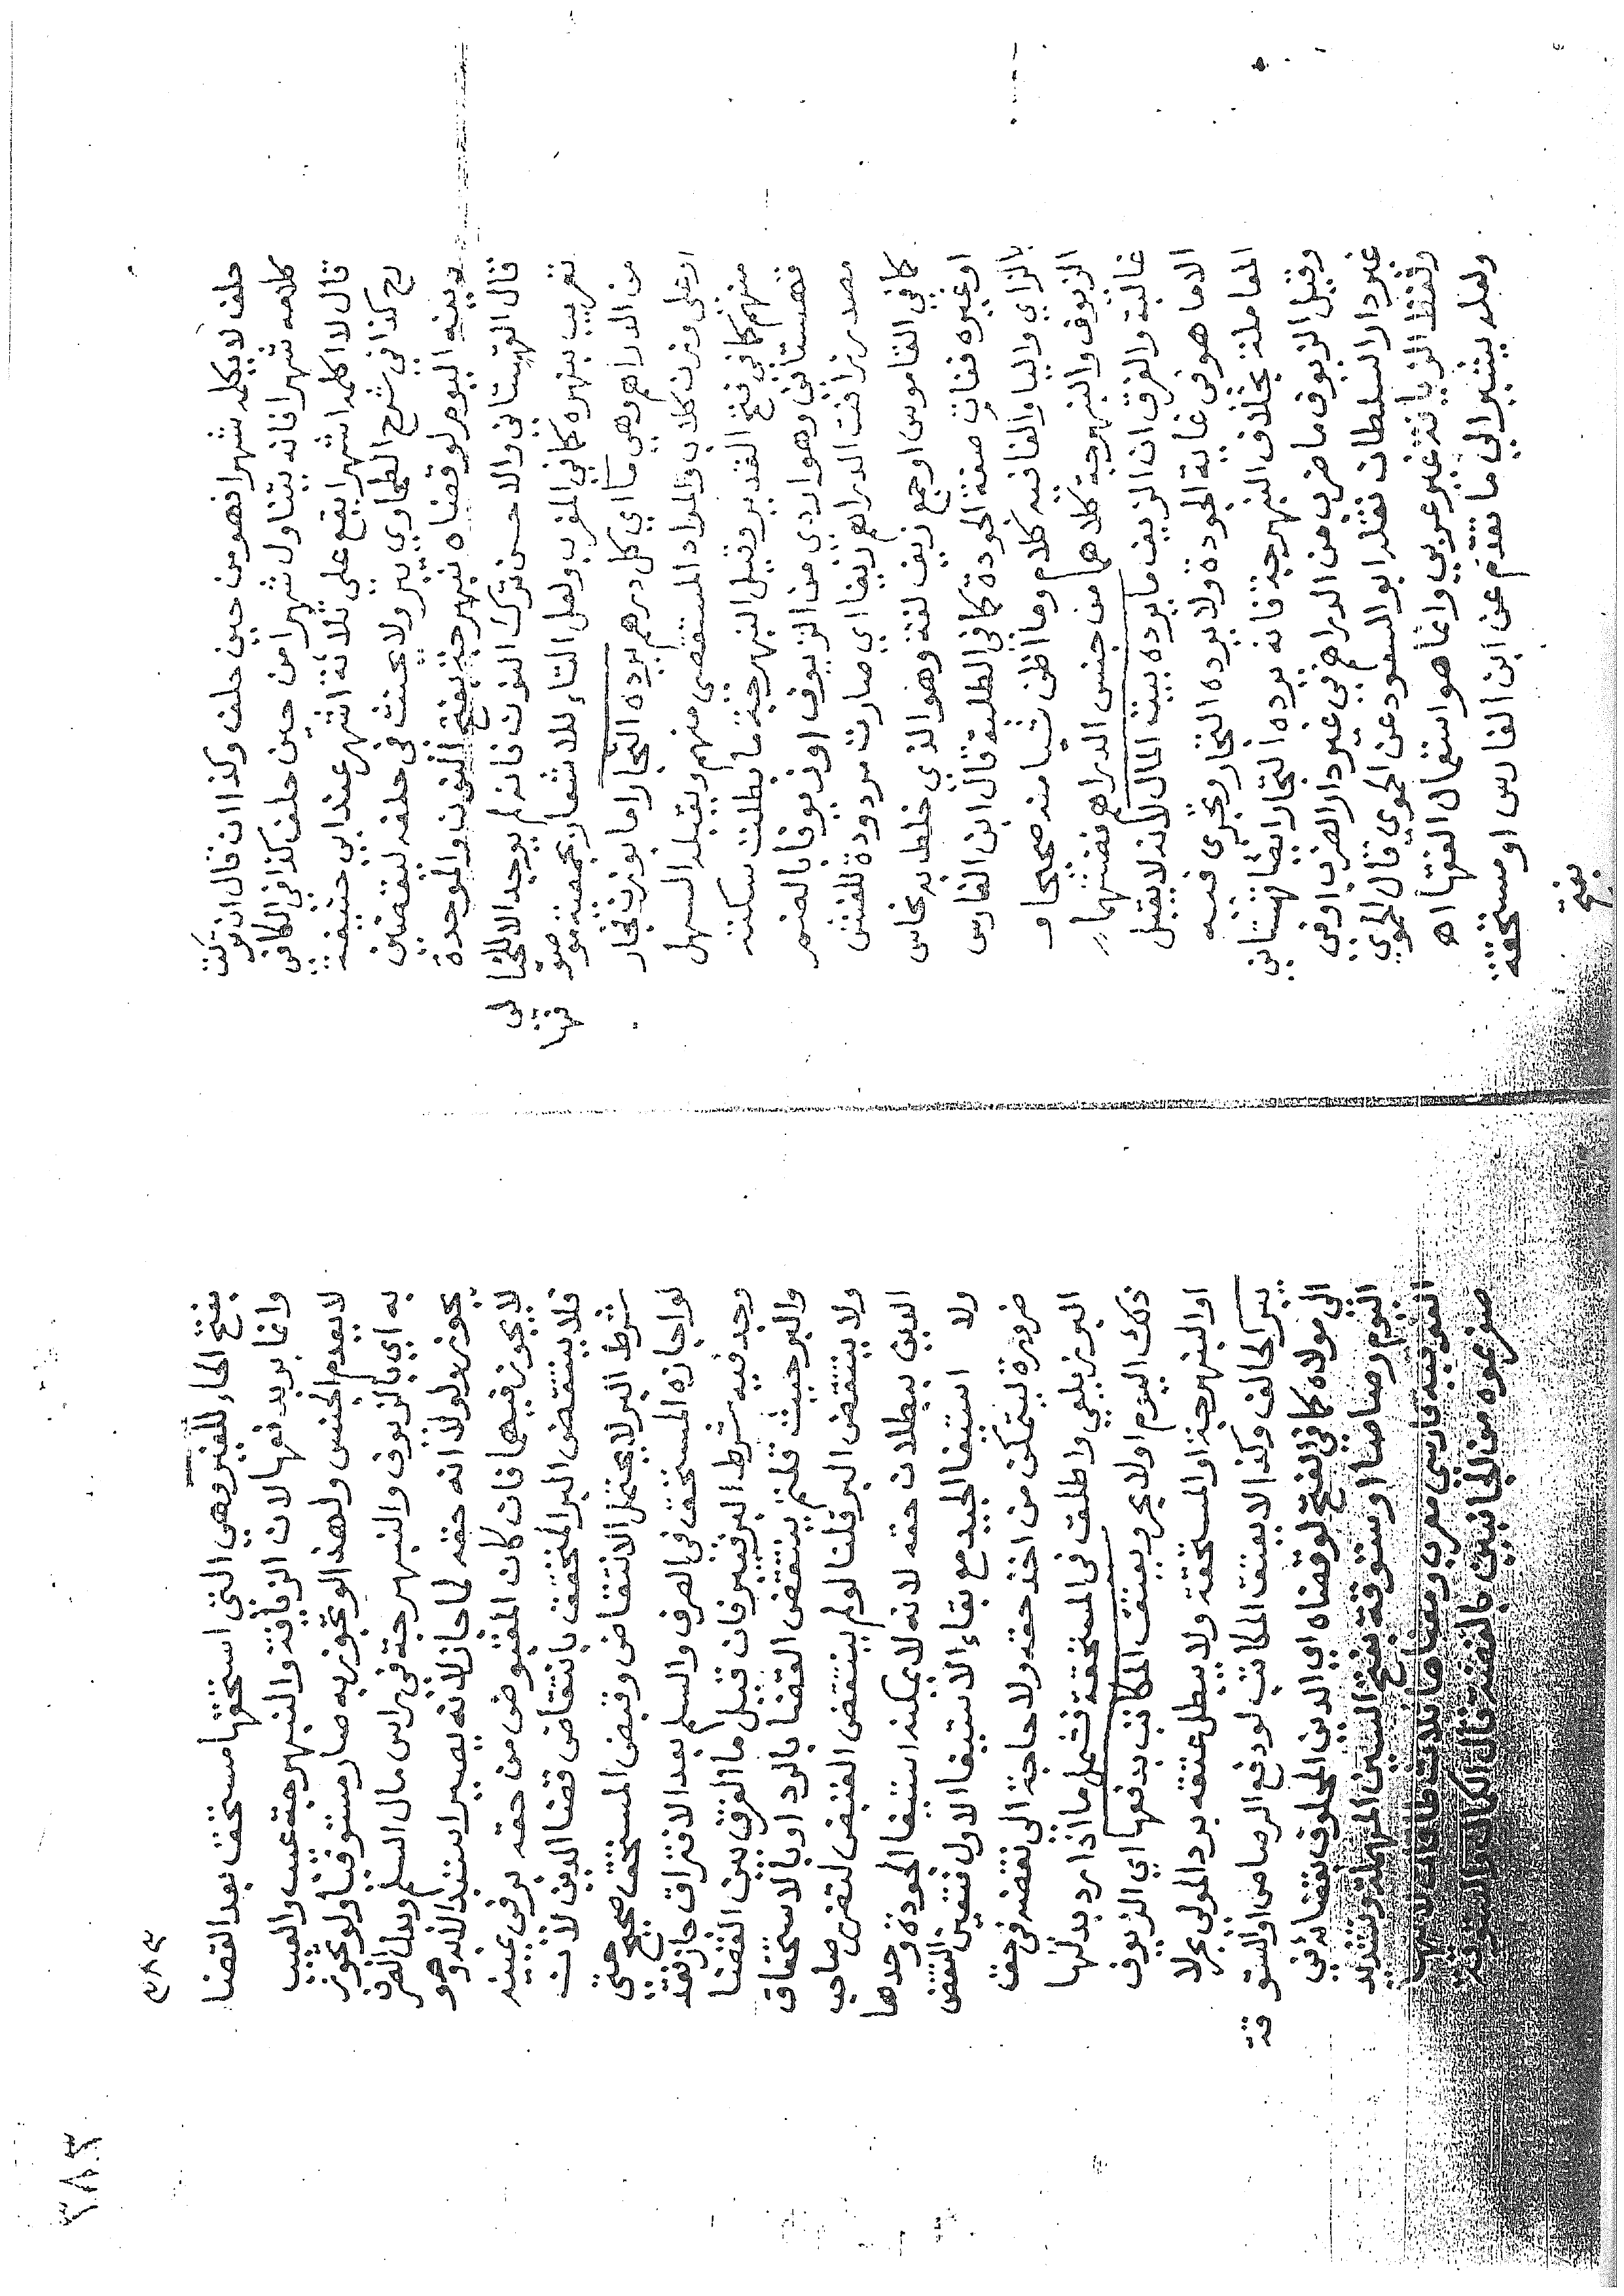 حلف لا يكلمه شهرا فهو من حين حلف وكذا ان قال ان تركت
كلامه شهرا فانه يتناول شهرا من حين حلف كذا في الكافي
قال لا اكلمه اشهرا يقع على ثلاثة اشهر عند ابي حنيفة
رح كذا في شرح الطحاوي يبر ولا يحنث في حلفه ليقضين
دينه اليوم لو قضاه نبهرجة بفتح النون والموحدة
قال القهستاني والاحسن ترك النون فانه لم يوجد الا للخالي
تقريب بنهره كما في المغرب ولعل التاء للاشعار بجمعية موصوفها
من الدراهم وهي ما اي كل درهم يرده التجار اما بوزن تجار
او على وزن كلاب والمراد المستقصى منهم ويقبله السهل
منهم كما في فتح القدير وقيل النبهرجة ما بطلت سكته
قهستاني وهو اردى من الزيوف او زيوفا بالضم
مصدر زافت الدراهم زيفا اي صارت مردودة للغش
كما في القاموس او جمع زيف لغة وهو الذي خلط به نحاس
او غيره ففات صفة الجودة كما في الطلبة قال ابن الفارس
بالزاي واليا والفا فيه كلام وما اظن شيا منه صحيحا و
الزيوف والنبهرجة كلاهما من جنس الدراهم فضتهما
غالبة والفرق ان الزيف ما يرده بيت المال لانه لا يقبل
الا ما هو في غاية الجودة ولا يرده التجار ويجرى فيه
المعاملة بخلاف النبهرجة فانه يرده التجار ايضا قهستاني
وقيل الزيوف ما ضرب من الدراهم في غير دار الضرب او في
غير دار السلطان نقله ابو السعود عن الحموي قال الحموي
ولفظ الزيافة غير عربي وانما هو استعمال الفقها اه
ولعله يشير الى ما تقدم عن ابن الفارس او مستحقة
بفتح
٣٨٣
بفتح الحاء للغير وهي التي استحقها مستحق بعد القضا
وانما بر بدفعها لان الزيافة والنبهرجة عيب والعيب
لا يعدم الجنس ولهذا لو تجوز به صار مستوفيا ولو تجوز
به اي بالزيوف والنبهرجة في راس مال السلم وبدل الصرف
يجوز ولولا انه حقه لما جاز لانه يصير استبدالا وهو
لا يجوز فيهما فان كان المقبوض من حقه بر في يمينه
فلا ينتقض البر المتحقق بانتقاض قضا الدين لان
شرط البر لا يحتمل الانتقاض وقبض المستحق صحيح حتى
لو اجازه المستحق في الصرف والسلم بعد الافتراق جاز فقد
وجد فيه شرط البر فيبر فان قيل ما الفرق بين القضا
والبر حيث قلتم ينتقض القضا بالرد او بالاستحقاق
ولا ينتقض البر قلنا لو لم ينتقض القبض لتضرر صاحب
الدين ببطلان حقه لانه لا يمكنه استيفا الجودة وحدها
ولا استيفا الجيد مع بقاء الاستيفا الاول فتعين النقض
ضرورة ليتمكن من اخذ حقه ولا حاجة الى نقضه في حق
البر زيلعي واطلق في المستحقة فشمل ما اذا رد بدلها
ذلك اليوم اولا بحر ويعتق المكاتب بدفعها اي الزيوف
او النبهرجة او المستحقة ولا يبطل عتقه برد المولى بحر لا
يبر الحالف وكذا لا يعتق المكاتب لو دفع الرصاص او الستوقة
الى مولاه كما في الفتح لو قضاه اي الدين المحلوف بقضائه في
اليوم رصاصا او ستوقة بفتح السين المهملة وتشديد
الفوقية فارسي معرب ومعناها ثلاث طاقات لانهم
صفر مموه من الجانبين بالفضة قال الكمال والستوقة
٣٨٣